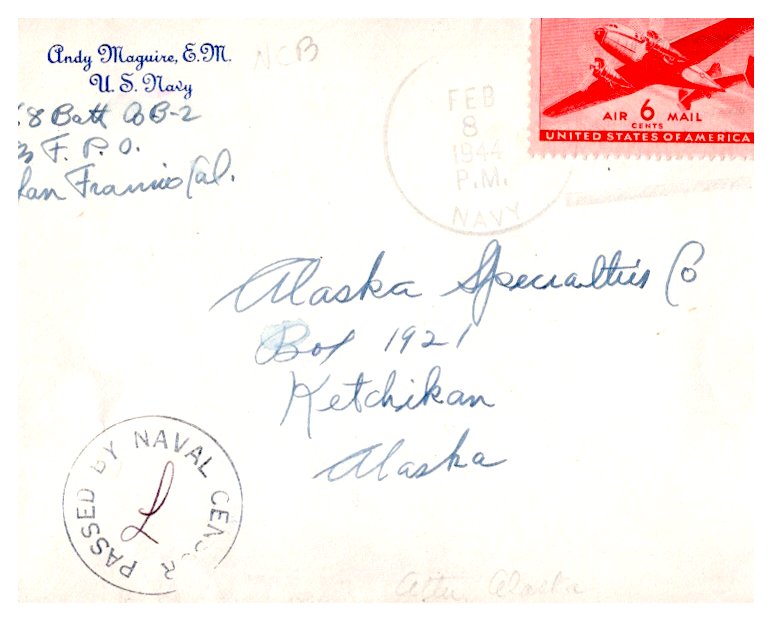 Andy Maguire, E.M.
U. S. Navy
8 Batt B-2
F. P. O.
San Franciso Cal.
NCB
FEB
8
1944
P.M.
NAVY
AIR 6 MAIL
CENTS
UNITED STATES OF AMERICA
Alaska Specialties Co
Box 1921
Ketchikan
Alaska
PASSED BY NAVAL CENSOR
L
Attu, Alaska